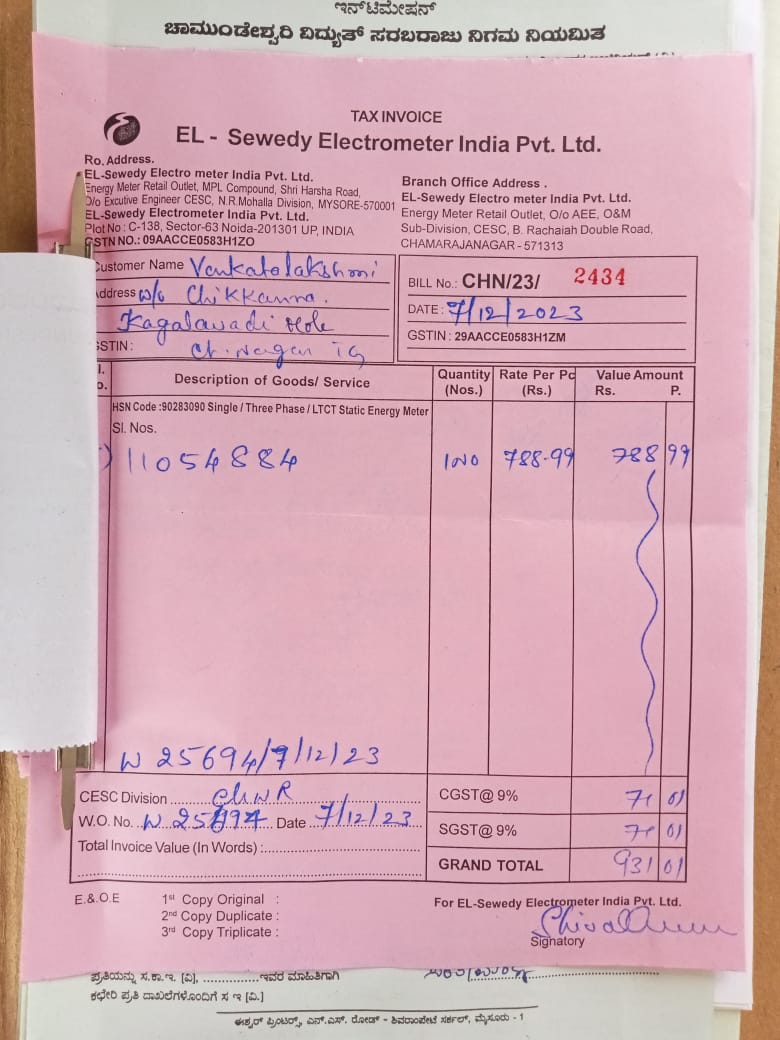 ಇನ್‌ಟಿಮೇಷನ್
ಚಾಮುಂಡೇಶ್ವರಿ ವಿದ್ಯುತ್ ಸರಬರಾಜು ನಿಗಮ ನಿಯಮಿತ
TAX INVOICE
EL - Sewedy Electrometer India Pvt. Ltd.
Ro. Address.
EL-Sewedy Electro meter India Pvt. Ltd.
Energy Meter Retail Outlet, MPL Compound, Shri Harsha Road,
D/o Excutive Engineer CESC, N.R.Mohalla Division, MYSORE-570001
EL-Sewedy Electrometer India Pvt. Ltd.
Plot No : C-138, Sector-63 Noida-201301 UP, INDIA
GSTN NO.: 09AACCE0583H1ZO
Branch Office Address .
EL-Sewedy Electro meter India Pvt. Ltd.
Energy Meter Retail Outlet, O/o AEE, O&M
Sub-Division, CESC, B. Rachaiah Double Road,
CHAMARAJANAGAR - 571313
Customer Name Venkatolakshmi
Address w/o Chikkanna.
Kagalawadi Hole
GSTIN: Ch. Nagar TQ
BILL No.: CHN/23/ 2434
DATE : 7/12/2023
GSTIN : 29AACCE0583H1ZM
Description of Goods/ Service Quantity (Nos.) Rate Per Pc (Rs.) Value Amount Rs. P.
HSN Code :90283090 Single / Three Phase / LTCT Static Energy Meter
Sl. Nos.
11054884 1No 788-99 788 99
W 25694/7/12/23
CESC Division CHNR
W.O. No. W 25694 Date 7/12/23
Total Invoice Value (In Words) :
CGST@ 9% 71 01
SGST@ 9% 71 01
GRAND TOTAL 931 01
E.&.O.E
1st Copy Original :
2nd Copy Duplicate :
3rd Copy Triplicate :
For EL-Sewedy Electrometer India Pvt. Ltd.
Signatory
ಪ್ರತಿಯನ್ನು ಸ.ಕಾ.ಇ. [ವಿ], ಇವರ ಮಾಹಿತಿಗಾಗಿ
ಕಛೇರಿ ಪ್ರತಿ ದಾಖಲೆಗಳೊಂದಿಗೆ ಸ ಇ [ವಿ.]
ಈಶ್ವರ್ ಪ್ರಿಂಟರ್ಸ್, ಎನ್.ಎಸ್. ರೋಡ್ - ಶಿವರಾಂಪೇಟೆ ಸರ್ಕಲ್, ಮೈಸೂರು - 1